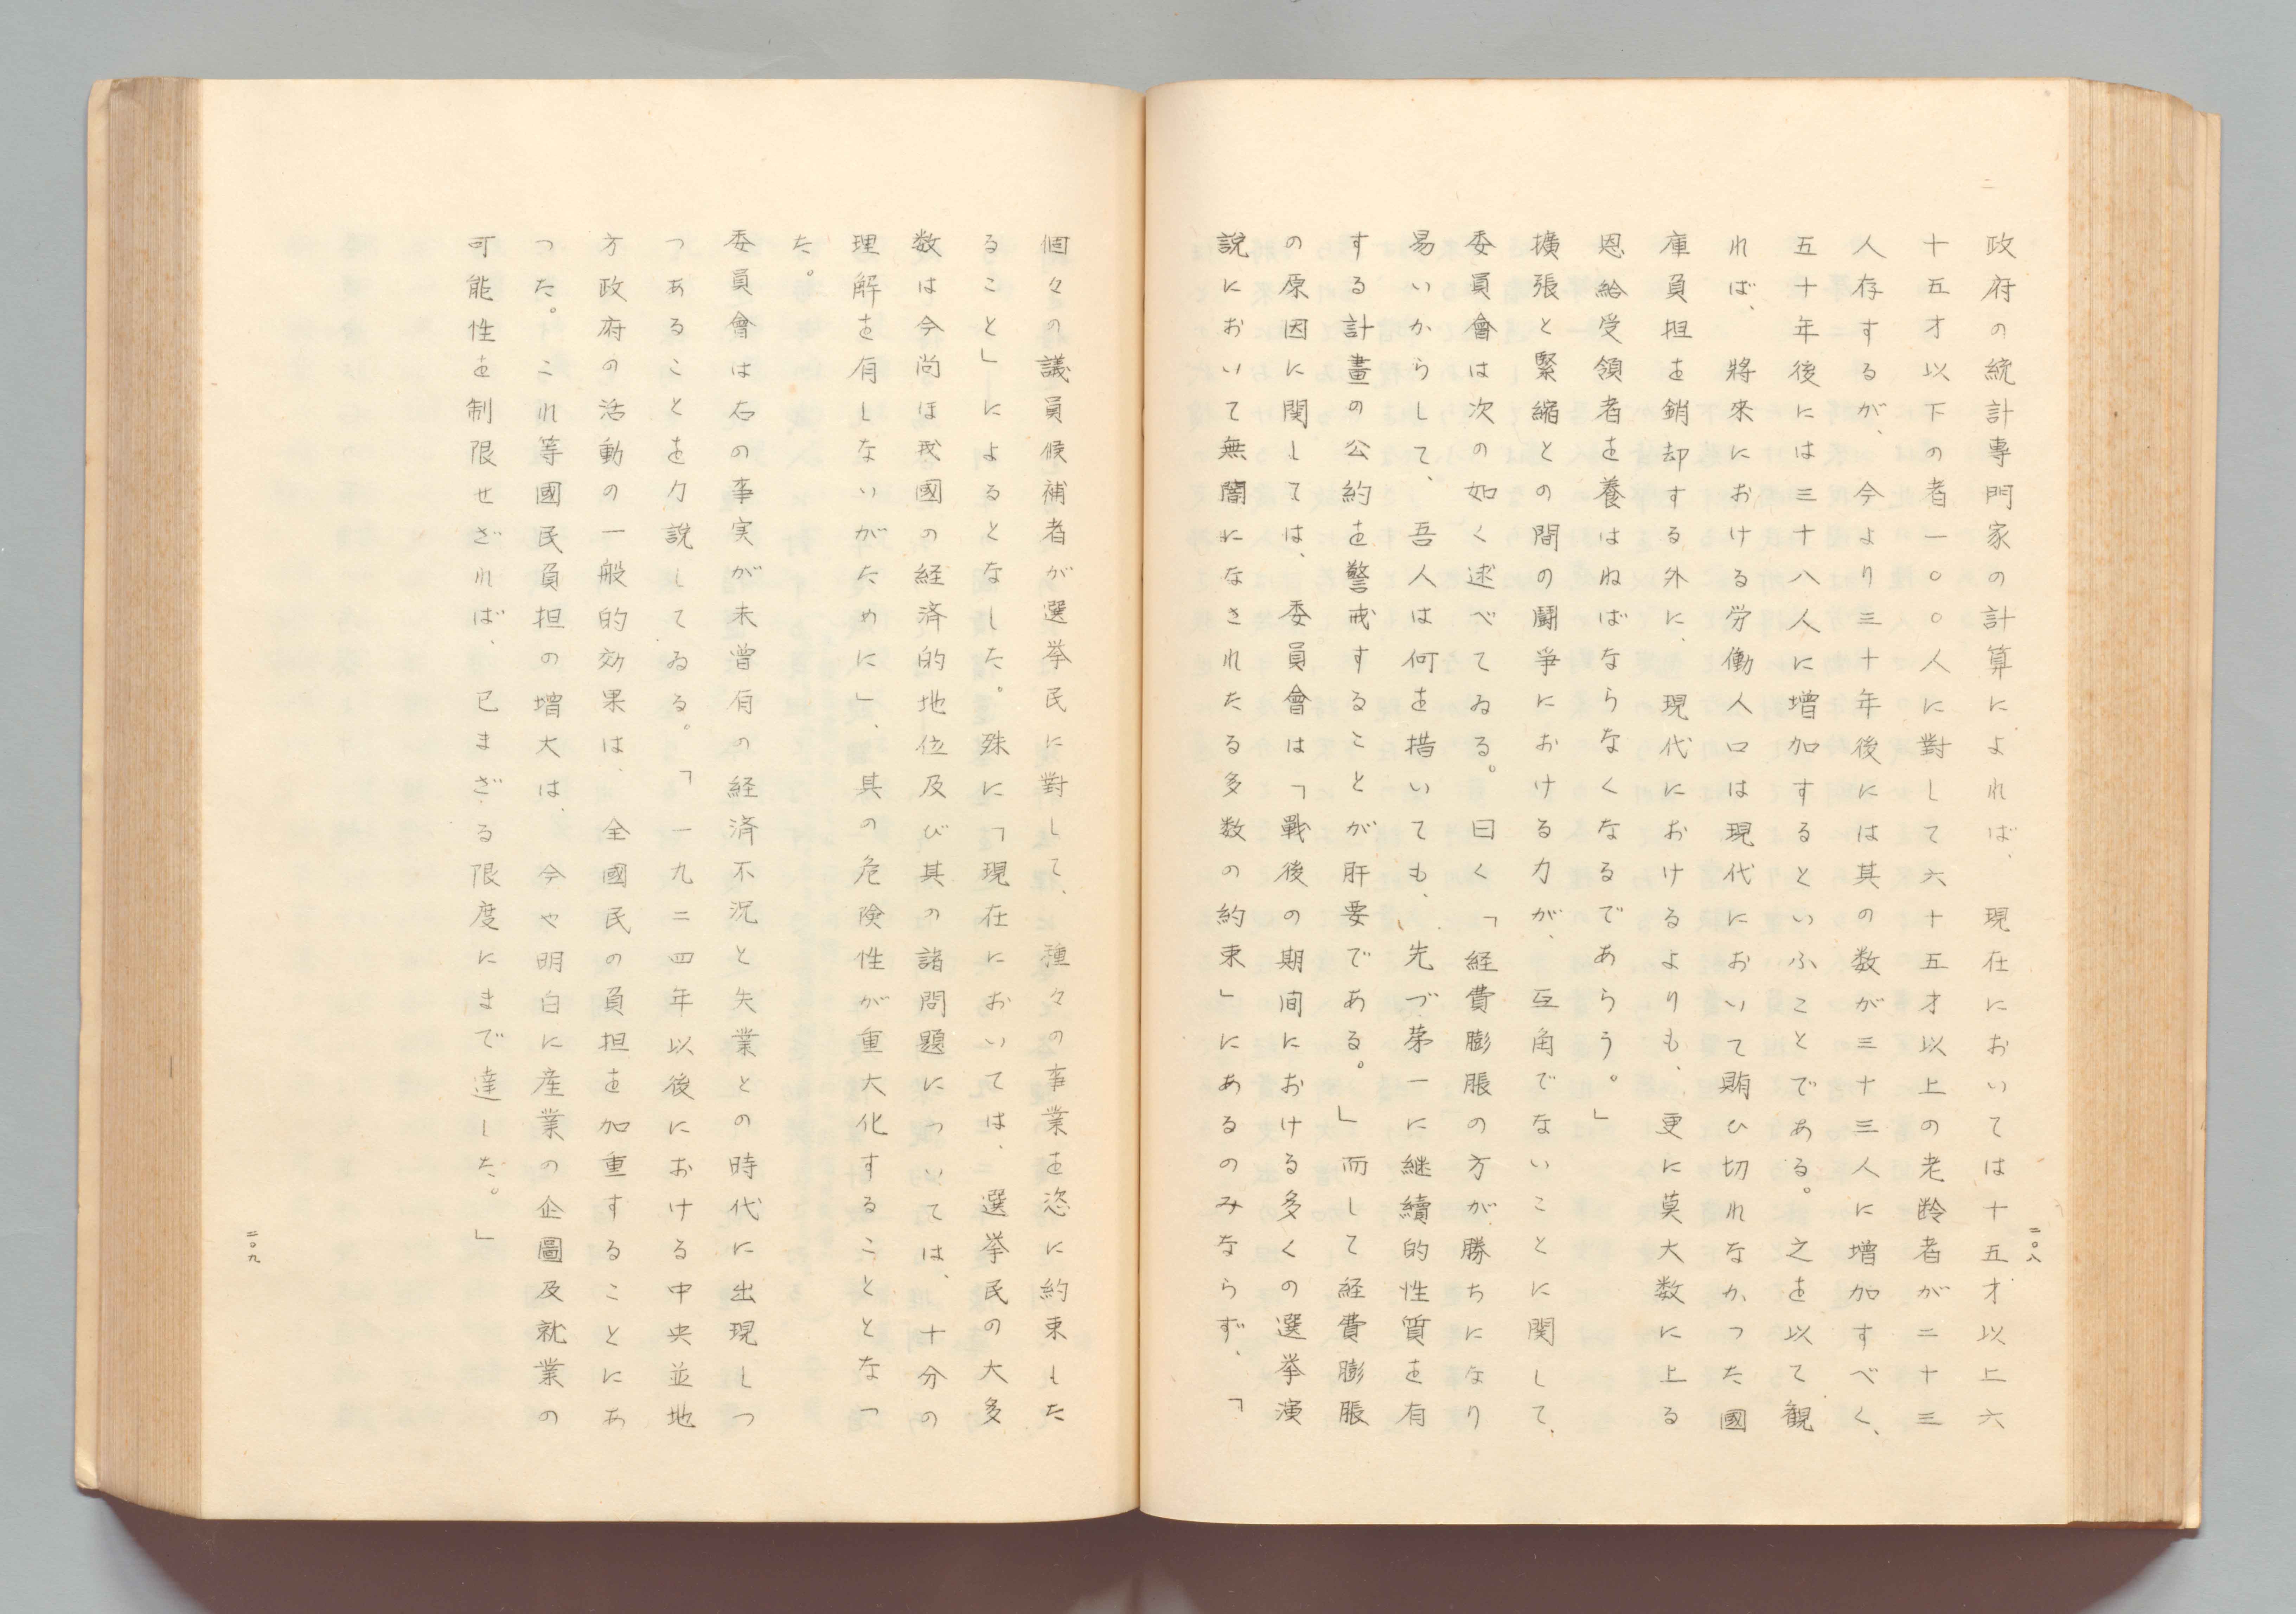 政府の統計專門家の計算によれば、現在においては十五才以上六
十五才以下の者一〇〇人に對して六十五才以上の老齢者が二十三
人存するが、今より三十年後には其の数が三十三人に增加すべく、
五十年後には三十八人に增加するといふことである。之を以て観
れば、將來における労働人口は現代において賄ひ切れなかつた國
庫負担を銷却する外に、現代におけるよりも、更に莫大数に上る
恩給受領者を養はねばならなくなるであらう。」
擴張と緊縮との間の鬪爭における力が、互角でないことに関して、
委員會は次の如く逑べてゐる。曰く「経費膨脹の方が勝ちになり
易いからして、吾人は何を措いても、先づ第一に継續的性質を有
する計畫の公約を警戒することが肝要である。」而して経費膨脹
の原因に関しては、委員會は「戰後の期間における多くの選挙演
說において無闇になされたる多数の約束」にあるのみならず、「
二〇八
個々の議員候補者が選挙民に對して、種々の事業を恣に約束した
ること」によるとなした。殊に「現在においては、選挙民の大多
数は今尚ほ我國の経済的地位及び其の諸問題については、十分の
理解を有しないがために」、其の危険性が重大化することとなつ
た。
委員會は右の事実が未曾有の経済不況と失業との時代に出現しつ
つあることを力說してゐる。「一九二四年以後における中央並地
方政府の活動の一般的効果は、全國民の負担を加重することにあ
つた。これ等國民負担の增大は、今や明白に産業の企圖及就業の
可能性を制限せざれば、已まざる限度にまで達した。」
二〇九